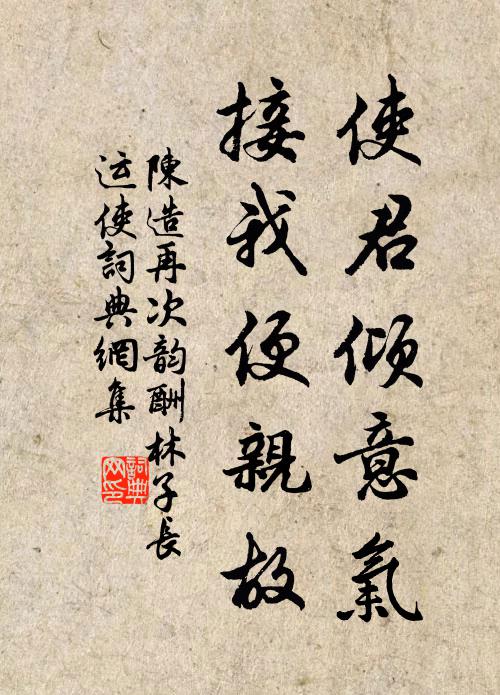 使君傾意氣
接我便親故
陳造再次韵酬林子長
运使詞典網集
詞典网印